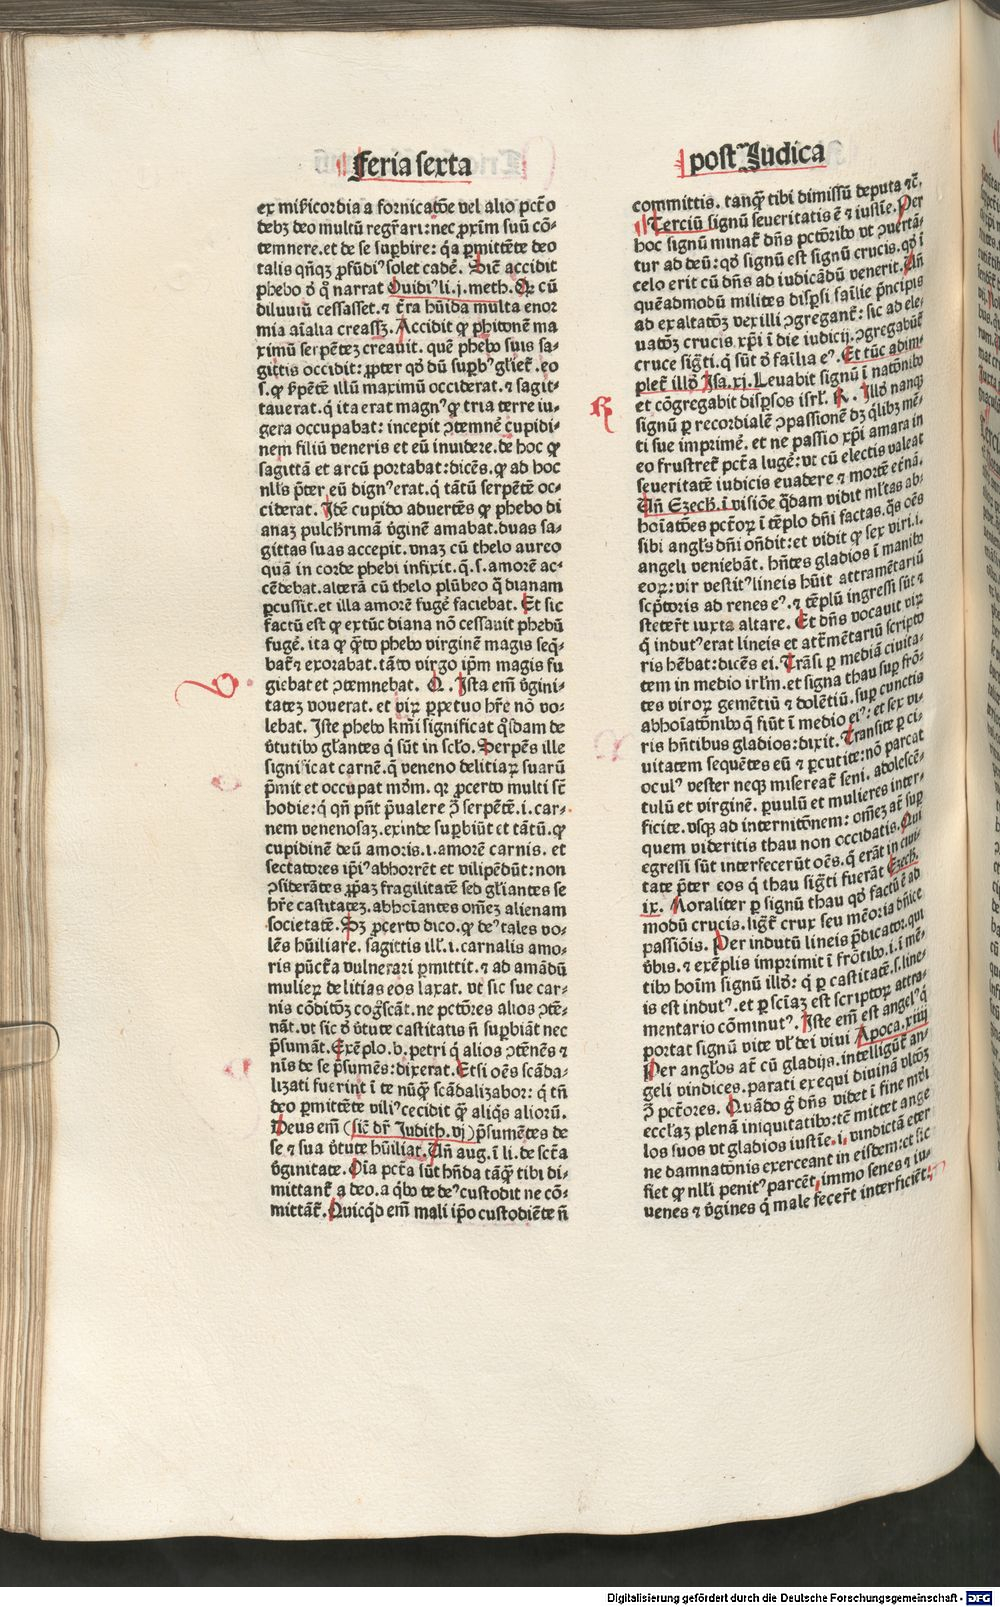 feria sexta
ex mīficordia a fornicatōe vel alio pctō
debȝ deo multū regr̄ari: nec ꝓxim̄ suū cō-
temnere. et de se supbire: q̄a ꝑmittēte deo
talis qn̄qȝ ꝓfūdiꝰ solet cadē. Sic̄ accidit
phebo ꝟ ꝙ narrat Ouidiꝰ li. j. meth. Qꝛ cū
diluuiū cessasset. ⁊ t̄ra hūida multa enor
mia aīalia creassȝ. Accidit ꝙ phitonē ma
ximū serpēteȝ creauit. quē phebꝰ suis sa-
gittis occidit: ꝓpter qd̄ dū supbꝰ gliet̄. eo
.s. ꝙ ẜpētē illū maximū occiderat. ⁊ sagit-
tauerat. q̇ ita erat magnꝰ ꝙ tria terre iu-
gera occupabat: incepit ꝯtemnē cupidi-
nem filiū veneris et eū inuidere. de hoc ꝙ
sagittā et arcū portabat: dicēs. ꝙ ad hoc
nllꝰs p̄ter eū dignꝰ erat. q̇ tātū serpētē oc-
ciderat. Idē cupido aduertēs ꝙ phebꝰ di
anaȝ pulcherrimā v̄ginē amabat. duas sa-
gittas suas accepit. vnaȝ cū thelo aureo
quā in corde phebi infixit. q̄. s. amorē ac-
cēdebat. alterā cū thelo plūbeo q̄ dianam
ꝑcussit. et illa amorē fugē faciebat. Et sic
factū est ꝙ extūc diana nō cessauit phebū
fugē. ita ꝙ q̄to phebꝰ virginē magis seq̄-
bat̄ ⁊ exorabat. tāto virgo ip̄m magis fu
giebat et ꝯtemnebat. Q. Ista em̄ v̄gini-
tateȝ vouerat. et viꝝ ꝑpetuo hr̄e nō vo-
lebat. Iste phebꝰ km̄ i significat q̇sdam de
v̄tutibꝰ gl̄antes q̇ sūt in sclō. Serpēs ille
significat carnē. q̄ veneno delitiaꝝ suarū
p̄mit et occupat mōm. qꝛ ꝓcerto multi st̄
hodie: q̇ qn̄ pn̄t p̄ualere ꝯ serpētē. i. car-
nem venenosaȝ. exinde supbiūt et tātū. ꝙ
cupidinē deū amoris. i. amorē carnis. et
sectatores ip̄iꝰ abhorrēt et vilipēdūt: non
ꝯsiderātes ꝓpaȝ fragilitatē sed gl̄iantes se
hr̄e castitateȝ. abhoīantes om̄eȝ alienam
societatē. Sȝ ꝓcerto dico. ꝙ deꝰ tales vo-
lēs hūiliare. sagittis ill̄. i. carnalis amo-
ris pūct̄a vulnerari ꝑmittit. ⁊ ad amādū
mulieꝝ delitias eos laxat. vt sic sue car-
nis cōditōȝ coḡscāt. ne pctōres alios ꝯtē-
nāt. vt sic ꝟ v̄tute castitatis n̄ supbiāt nec
p̄sumāt. Exēplo. b. petri q̇ alios ꝯtēnēs ⁊
nis̄ de se p̄sumēs: dixerat. Etsi oēs scāda-
lizati fuerint i te nūꝙ scādalizabor: q̇ tn̄
deo ꝑmittēte viliꝰ cecidit ꝙ aliq̇s aliorū.
Deus em̄ (sic̄ dr̄ Judith. vj) p̄sumētes de
se ⁊ sua v̄tute hūiliat. Un̄ aug. i li. de sct̄a
v̄ginitate. Oīa pctā sūt hn̄da tāꝙ tibi di-
mittant̄ a deo. a q̇bꝰ te deꝰ custodit ne cō-
mittāt̄. Quicq̇d em̄ mali ip̄o custodiēte n̄
post Judica
committis. tanꝙ tibi dimissū deputa ⁊c̄.
Terciū signū seueritatis ē ⁊ iustīe. Per
hoc signū minat̄ dn̄s pctōribꝰ vt ꝯuertā-
tur ad deū: qd̄ signū est signū crucis. qd̄ ī
celo erit cū dn̄s ad iudicādū venerit. Un̄
quēadmodū milites dispersi faīlie p̄ncipis
ad exaltatōȝ vexilli ꝯgregant̄: sic ad ele-
uatōȝ crucis. xp̄i ī die iudicij. ꝯgregabūt̄
cruce siḡti. q̇ sūt ꝟ faīlia eꝰ. Et tūc adim-
plet̄ illd̄ Isa. xj. Leuabit signū ī natōnibꝰ
et cōgregabit disꝑsos isrl̄. R. Illd̄ nanqȝ
signū ꝑ recordialē ꝯpassionē dȝ q̇libȝ mē-
ti sue imprimē. et ne passio xp̄i amara in
eo frustret̄ pctā lugē: vt cū electis valeat
seueritatē iudicis euadere ⁊ mortē et̄nā.
Un̄ Ezech. ī visiōe q̇dam vidit mltas ab-
hoīatōes pctōꝝ ī tēplo dn̄i factas. q̄s oēs
sibi angl̄s dn̄i on̄dit: et vidit ꝙ sex viri. i.
angeli veniebāt. hn̄tes gladios ī manibꝰ
eoꝝ: vir vestitꝰ lineis hūit attramētariū
scp̄toris ad renes eꝰ. ⁊ tēplū ingressi sūt ⁊
steter̄t iuxta altare. Et dn̄s vocauit viꝝ
q̇ indutꝰ erat lineis et att̄mētariū scripto
ris hēbat: dicēs ei. Trāsi ꝑ mediā ciuita-
tem in medio irl̄m. et signa thau suꝑ frō-
tes viroꝝ gemētiū ⁊ dolētiū. suꝑ cunctis
abhoīatōnibꝰ q̄ fiūt ī medio eiꝰ: et sex vi-
ris hn̄tibus gladios: dixit. Transite ꝑ ci-
uitatem sequētes eū ⁊ ꝑcutite: nō parcat
oculꝰ vester neqȝ misereat̄ seni. adolescē-
tulū et virginē. ꝑuulū et mulieres inter-
ficite. vsqȝ ad internitōnem: om̄eȝ at̄ suꝑ
quem videritis thau non occidatis. Qui
egressi sūt interfecerūt oēs. q̇ erāt in ciui-
tate p̄ter eos q̇ thau siḡti fuerāt Ezech.
ix. Moraliter ꝑ signū thau qd̄ factū ē ad
modū crucis. liḡt̄ crux seu mēoria dn̄ice
passiōis. Per indutū lineis p̄dicator. qui
v̄bis. ⁊ exēplis imprimit ī frōtibꝰ. i. ī mē-
tibꝰ hoīm signū illd̄: q̇ ꝑ castitatē. s. line-
is est indutꝰ. et ꝑ sc̄iaȝ est scriptoꝝ attra-
mentario cōminutꝰ. Iste em̄ est angelꝰ q̇
portat signū vite vl̄ dei viui Apoca. xiiij
Per angl̄os at̄ cū gladijs. intelligūt̄ an-
geli vindices. parati exequi diuinā vltōȝ
ꝯ pctōres. Quādo g̊ dn̄s videt ī fine mōi
eccl̄aȝ plenā iniquitatibꝰ: tē mittet ange
los suos vt gladios iustīe. i. vindictā eter
ne damnatōnis exerceant in eisdem: et sic
fiet ꝙ nlli penitꝰ parcēt. immo senes ⁊ iu-
uenes ⁊ v̄gines q̇ male fecer̄t interficiēt.
Digitalisierung gefördert durch die Deutsche Forschungsgemeinschaft - DFG